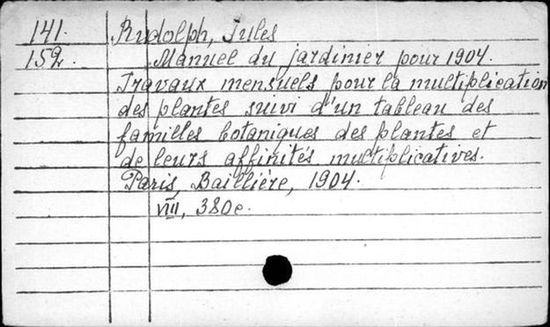 141. Rudolph, Jules
152. Manuel du jardinier pour 1904.
Travaux mensuels pour la multiplication
des plantes suivi d'un tableau des
familles botaniques des plantes et
de leurs affinités multiplicatives.
Paris, Baillière, 1904.
VIII, 380 e.